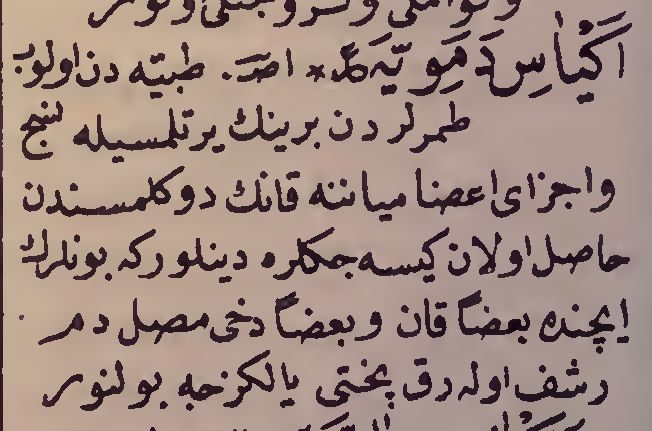 اَكْيَاسِ دَمَوِيَّه اصط. طبيه دن اولوب
طمرلردن برينك يرتلمسيله نسج
واجزاى اعضا مياننه قانك دوكلمسندن
حاصل اولان كيسه جكلره دينلوركه بونلرك
ايچنده بعضاً قان وبعضاً دخى مصل دم
رشف اوله رق پختى يالكزجه بولنور